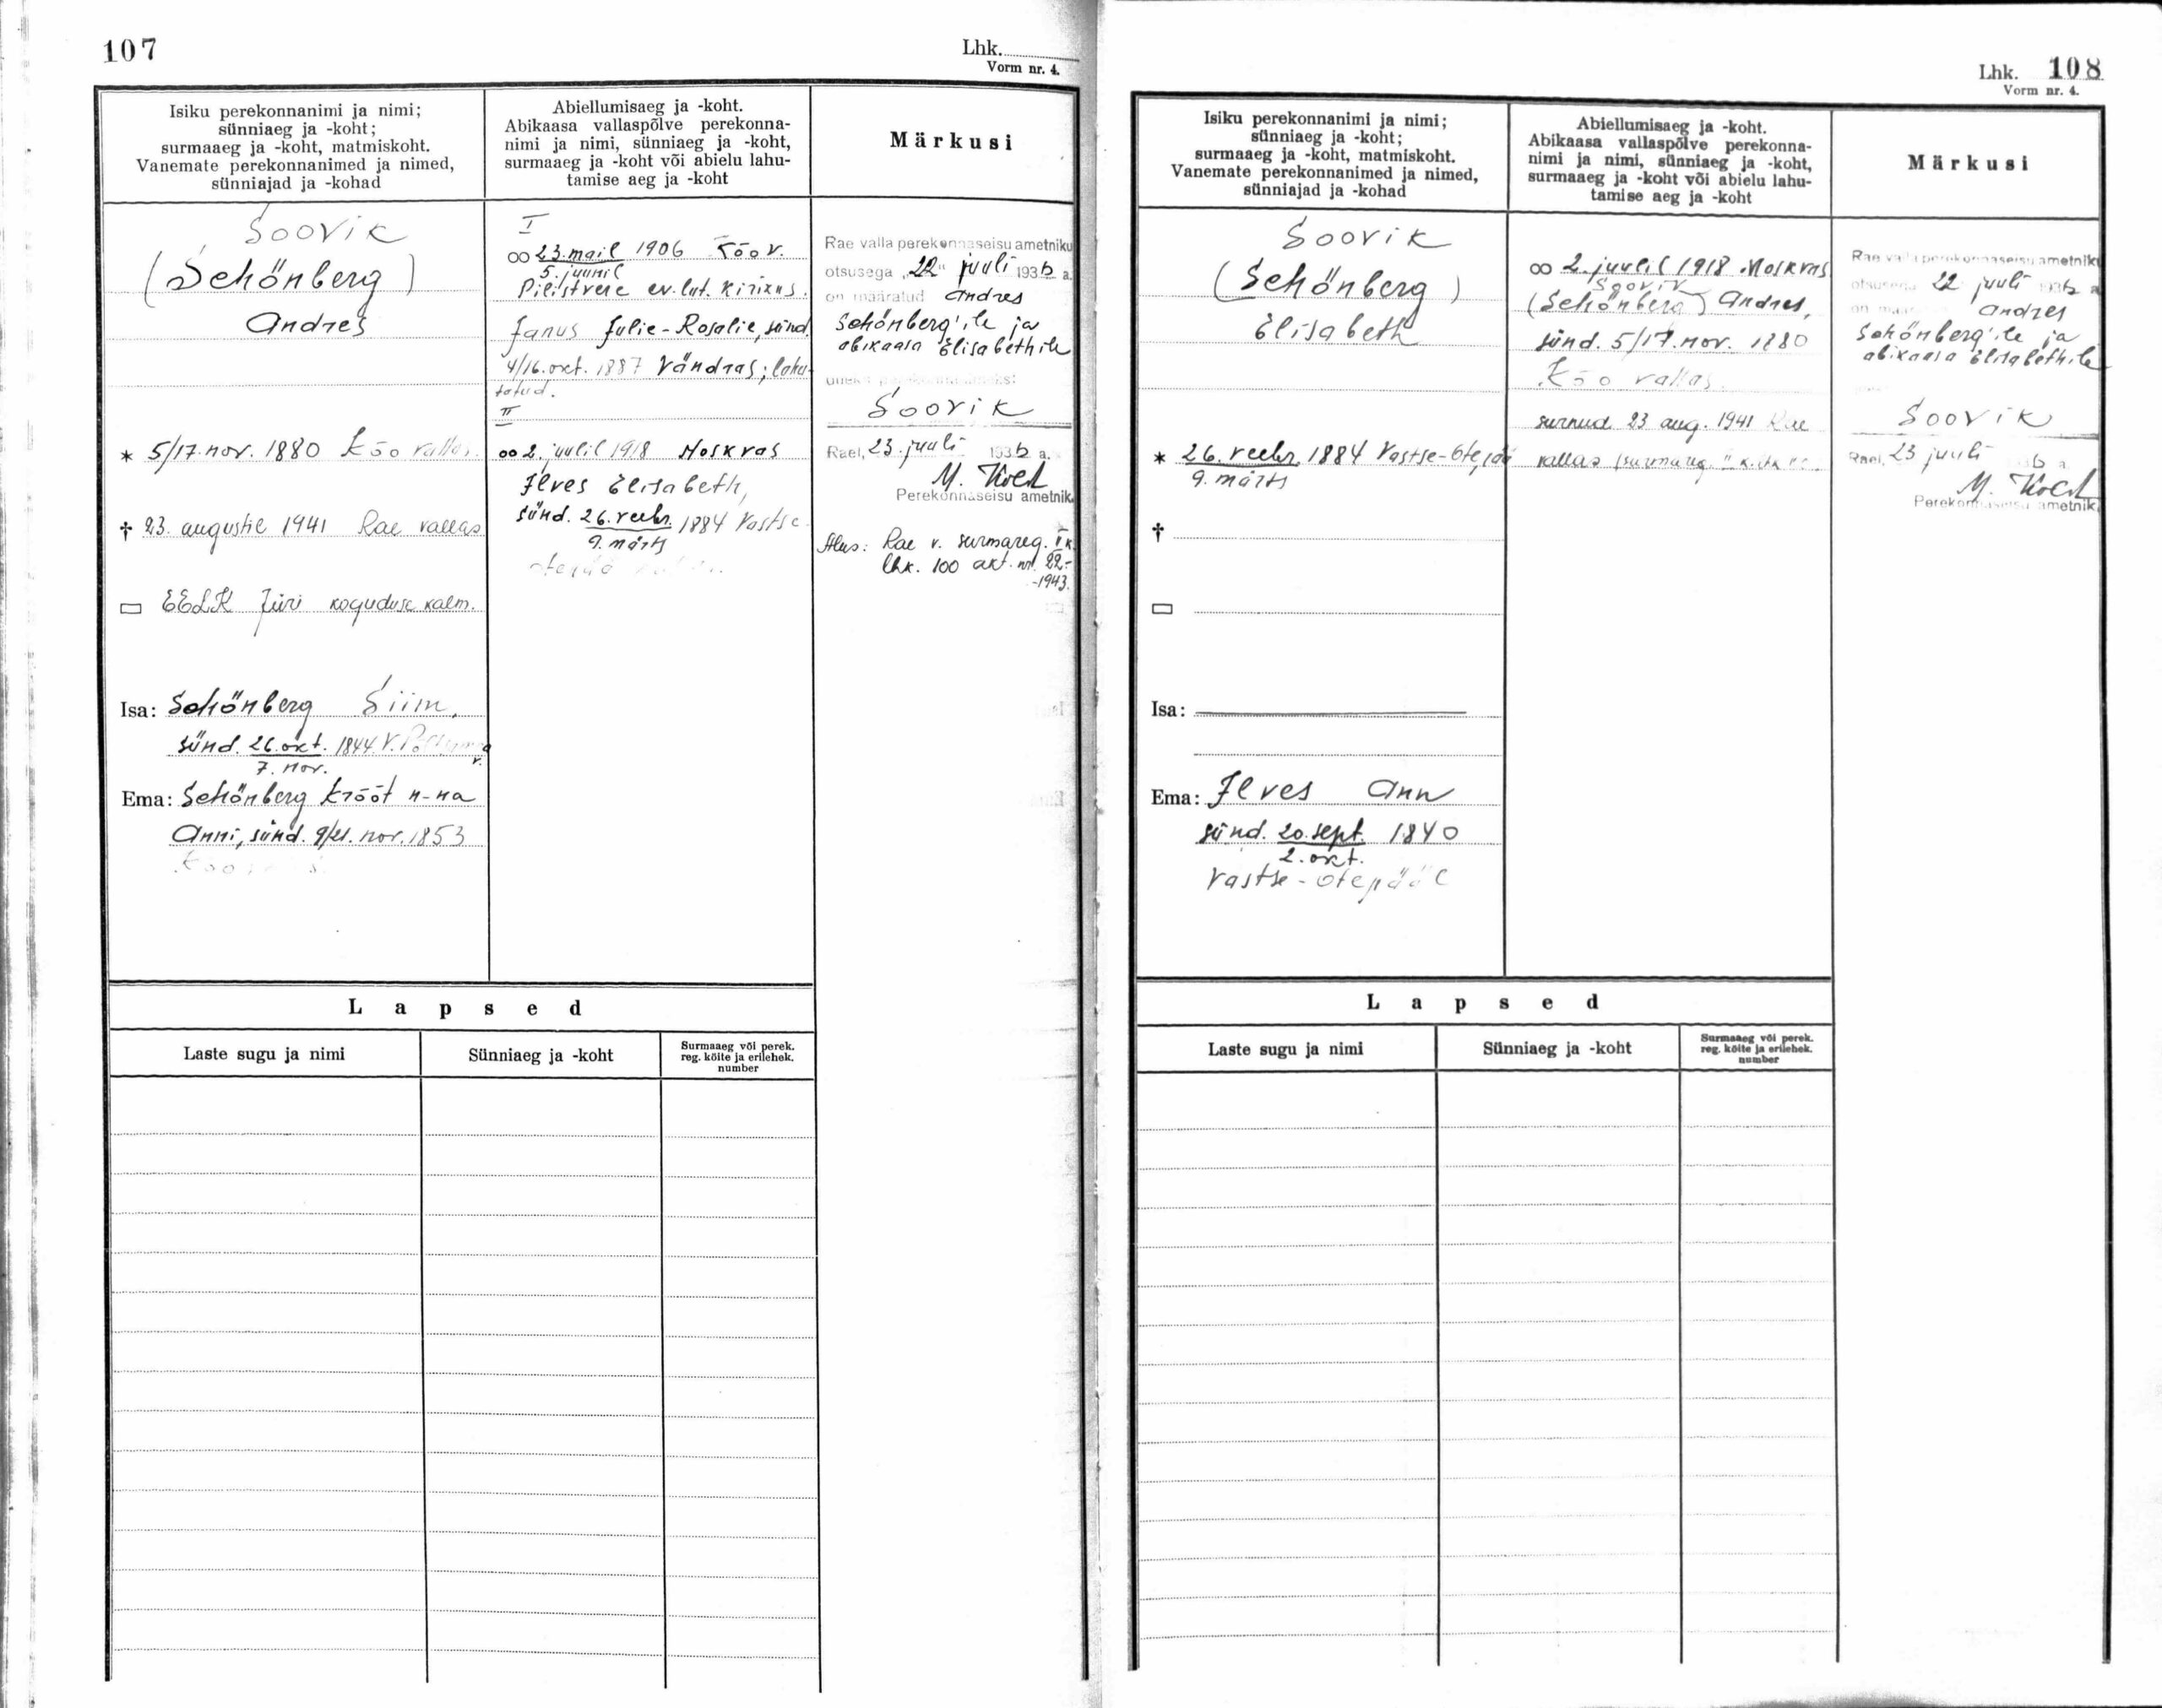 107
Lhk.
Vorm nr. 4.
Isiku perekonnanimi ja nimi;
sünniaeg ja -koht;
surmaaeg ja -koht, matmiskoht.
Vanemate perekonnanimed ja nimed,
sünniajad ja -kohad
Abiellumisaeg ja -koht.
Abikaasa vallaspõlve perekonna-
nimi ja nimi, sünniaeg ja -koht,
surmaaeg ja -koht või abielu lahu-
tamise aeg ja -koht
Märkusi
Soovik
(Schönberg)
Andres
* 5/17. nov. 1880 Kõo vallas
† 23. augustil 1941 Rae vallas
▭ EELK Jüri koguduse kalm.
Isa: Schönberg Siim,
sünd. 26. okt. 1844. V.
7. nov.
Ema: Schönberg Krõõt n-na
Anni, sünd. 9/21. nov. 1853
I
∞ 23. mail 1906 Kõo v.
5. juunil
Pilistvere ev. lut. kirikus.
Janus Julie-Rosalie, sünd.
4/16. okt. 1887 Vändras; lahu-
tatud.
II
∞ 2. juulil 1918 Moskvas
Ilves Elisabeth,
sünd. 26. veebr. 1884 Vastse-
9. märts
Otepää
Rae valla perekonnaseisuametniku
otsusega „22" juuli 1936 a.
on määratud Andres
Schönberg'ile ja
abikaasa Elisabethile
uueks perekonnanimeks:
Soovik
Rael, 23. juuli 1936 a.
M. Koch
Perekonnaseisu ametnik
Alus: Rae v. surmareg. II k.
lhk. 100 akt. nr. 22.-
-1943.
Lapsed
Laste sugu ja nimi
Sünniaeg ja -koht
Surmaaeg või perek.
reg. köite ja erilehek.
number
Lhk. 108
Vorm nr. 4.
Isiku perekonnanimi ja nimi;
sünniaeg ja -koht;
surmaaeg ja -koht, matmiskoht.
Vanemate perekonnanimed ja nimed,
sünniajad ja -kohad
Abiellumisaeg ja -koht.
Abikaasa vallaspõlve perekonna-
nimi ja nimi, sünniaeg ja -koht,
surmaaeg ja -koht või abielu lahu-
tamise aeg ja -koht
Märkusi
Soovik
(Schönberg)
Elisabeth
* 26. veebr. 1884 Vastse-Otepää
9. märts
†
▭
Isa:
Ema: Ilves Ann
sünd. 20. sept. 1840
2. okt.
Vastse-Otepääl
∞ 2. juulil 1918 Moskvas
Soovik
(Schönberg) Andres,
sünd. 5/17. nov. 1880
Kõo vallas.
surnud 23 aug. 1941 Rae
vallas (surmareg.
Rae valla perekonnaseisuametniku
otsusega 22 juuli 1936 a
on määratud Andres
Schönberg'ile ja
abikaasa Elisabethile
Soovik
Rael, 23 juuli 1936 a
M. Koch
Perekonnaseisu ametnik
Lapsed
Laste sugu ja nimi
Sünniaeg ja -koht
Surmaaeg või perek.
reg. köite ja erilehek.
number